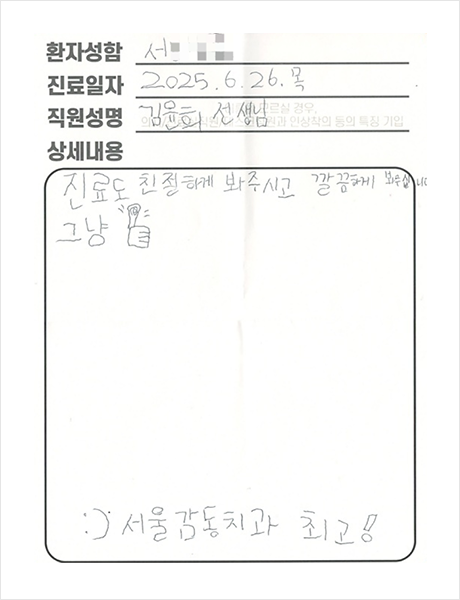 환자성함 서
진료일자 2025. 6. 26. 목
직원성명 김윤희 선생님
상세내용
진료도 친절하게 봐주시고 깔끔하게 봐주십니다
그냥
:) 서울감동치과 최고!!